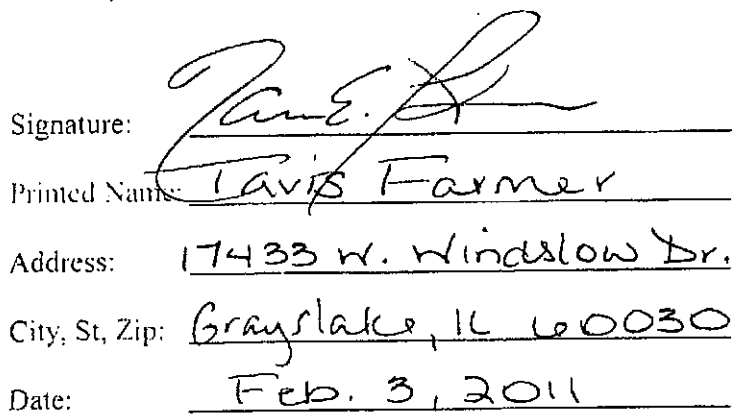 Signature:
Printed Name: Tavis Farmer
Address: 17433 W. Windslow Dr.
City, St, Zip: Grayslake, IL 60030
Date: Feb. 3, 2011